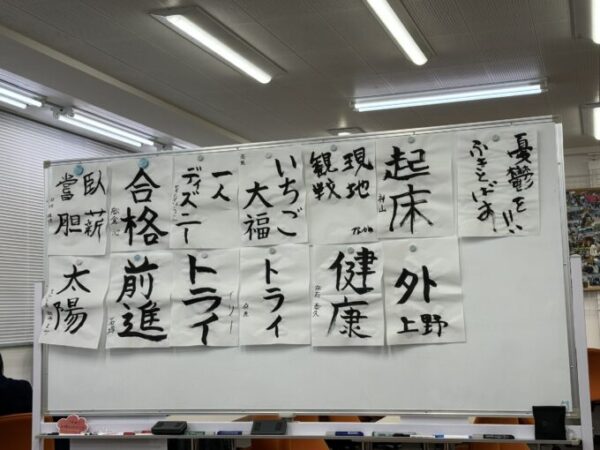 臥薪
嘗胆
合格
一人
ディズニー
いちご
大福
現地
観戦
起床
憂鬱を!!!
ふきとばす
太陽
前進
トライ
トライ
健康
外
上野